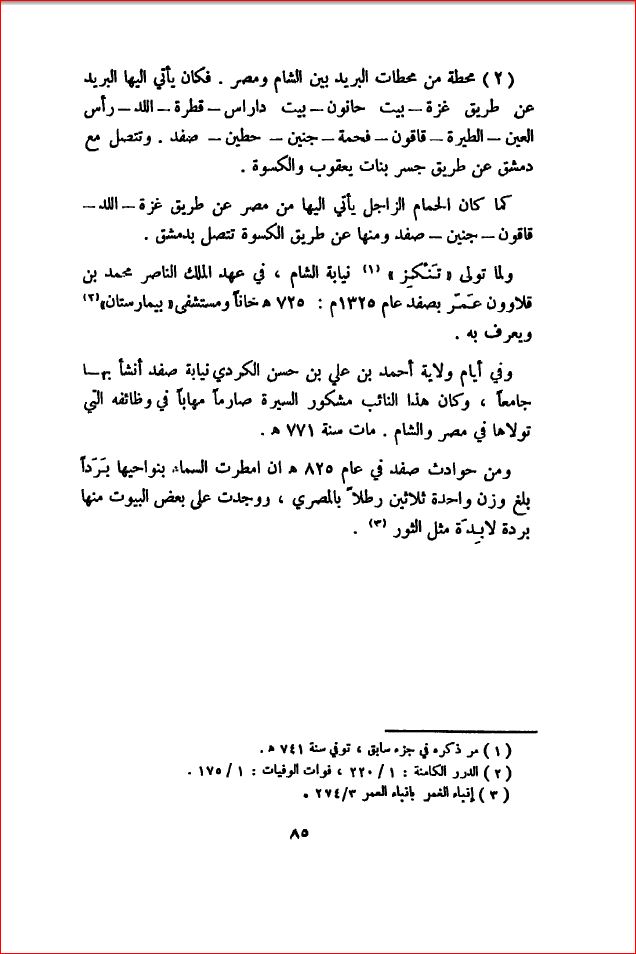 (٢) محطة من محطات البريد بين الشام ومصر . فكان يأتي اليها البريد
عن طريق غزة – بيت حانون – بيت داراس – قطرة – اللد – رأس
العين – الطيرة – قاقون – فحمة – جنين – حطين – صفد . وتتصل مع
دمشق عن طريق جسر بنات يعقوب والكسوة .
كما كان الحمام الزاجل يأتي اليها من مصر عن طريق غزة – اللد –
قاقون – جنين – صفد ومنها عن طريق الكسوة تتصل بدمشق .
ولما تولى « تَنْكِز » (١) نيابة الشام ، في عهد الملك الناصر محمد بن
قلاوون عَمَرّ بصفد عام ١٣٢٥م : ٧٢٥ ه خاناً ومستشفى « بيمارستان» (٢)
ويعرف به .
وفي أيام ولاية أحمد بن علي بن حسن الكردي نيابة صفد أنشأ بهـا
جامعاً ، وكان هذا النائب مشكور السيرة صارماً مهاباً في وظائفه التي
تولاها في مصر والشام . مات سنة ٧٧١ ه .
ومن حوادث صفد في عام ٨٢٥ ه ان امطرت السماء بنواحيها بَرَداً
بلغ وزن واحدة ثلاثين رطلاً بالمصري ، ووجدت على بعض البيوت منها
بردة لابِدَة مثل الثور (٣) .
(١) مر ذكره في جزء سابق ، توفي سنة ٧٤١ ه .
(٢) الدرر الكامنة : ١ / ٢٢٠ ، فوات الوفيات : ١ / ١٧٥ .
(٣) إنباء الغمر بانباء العمر ٣/٢٧٤ .
٨٥